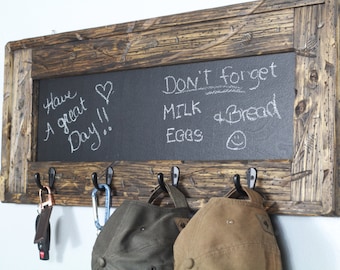 Have
A great
Day!!
DON'T forget
MILK & Bread
EGGS